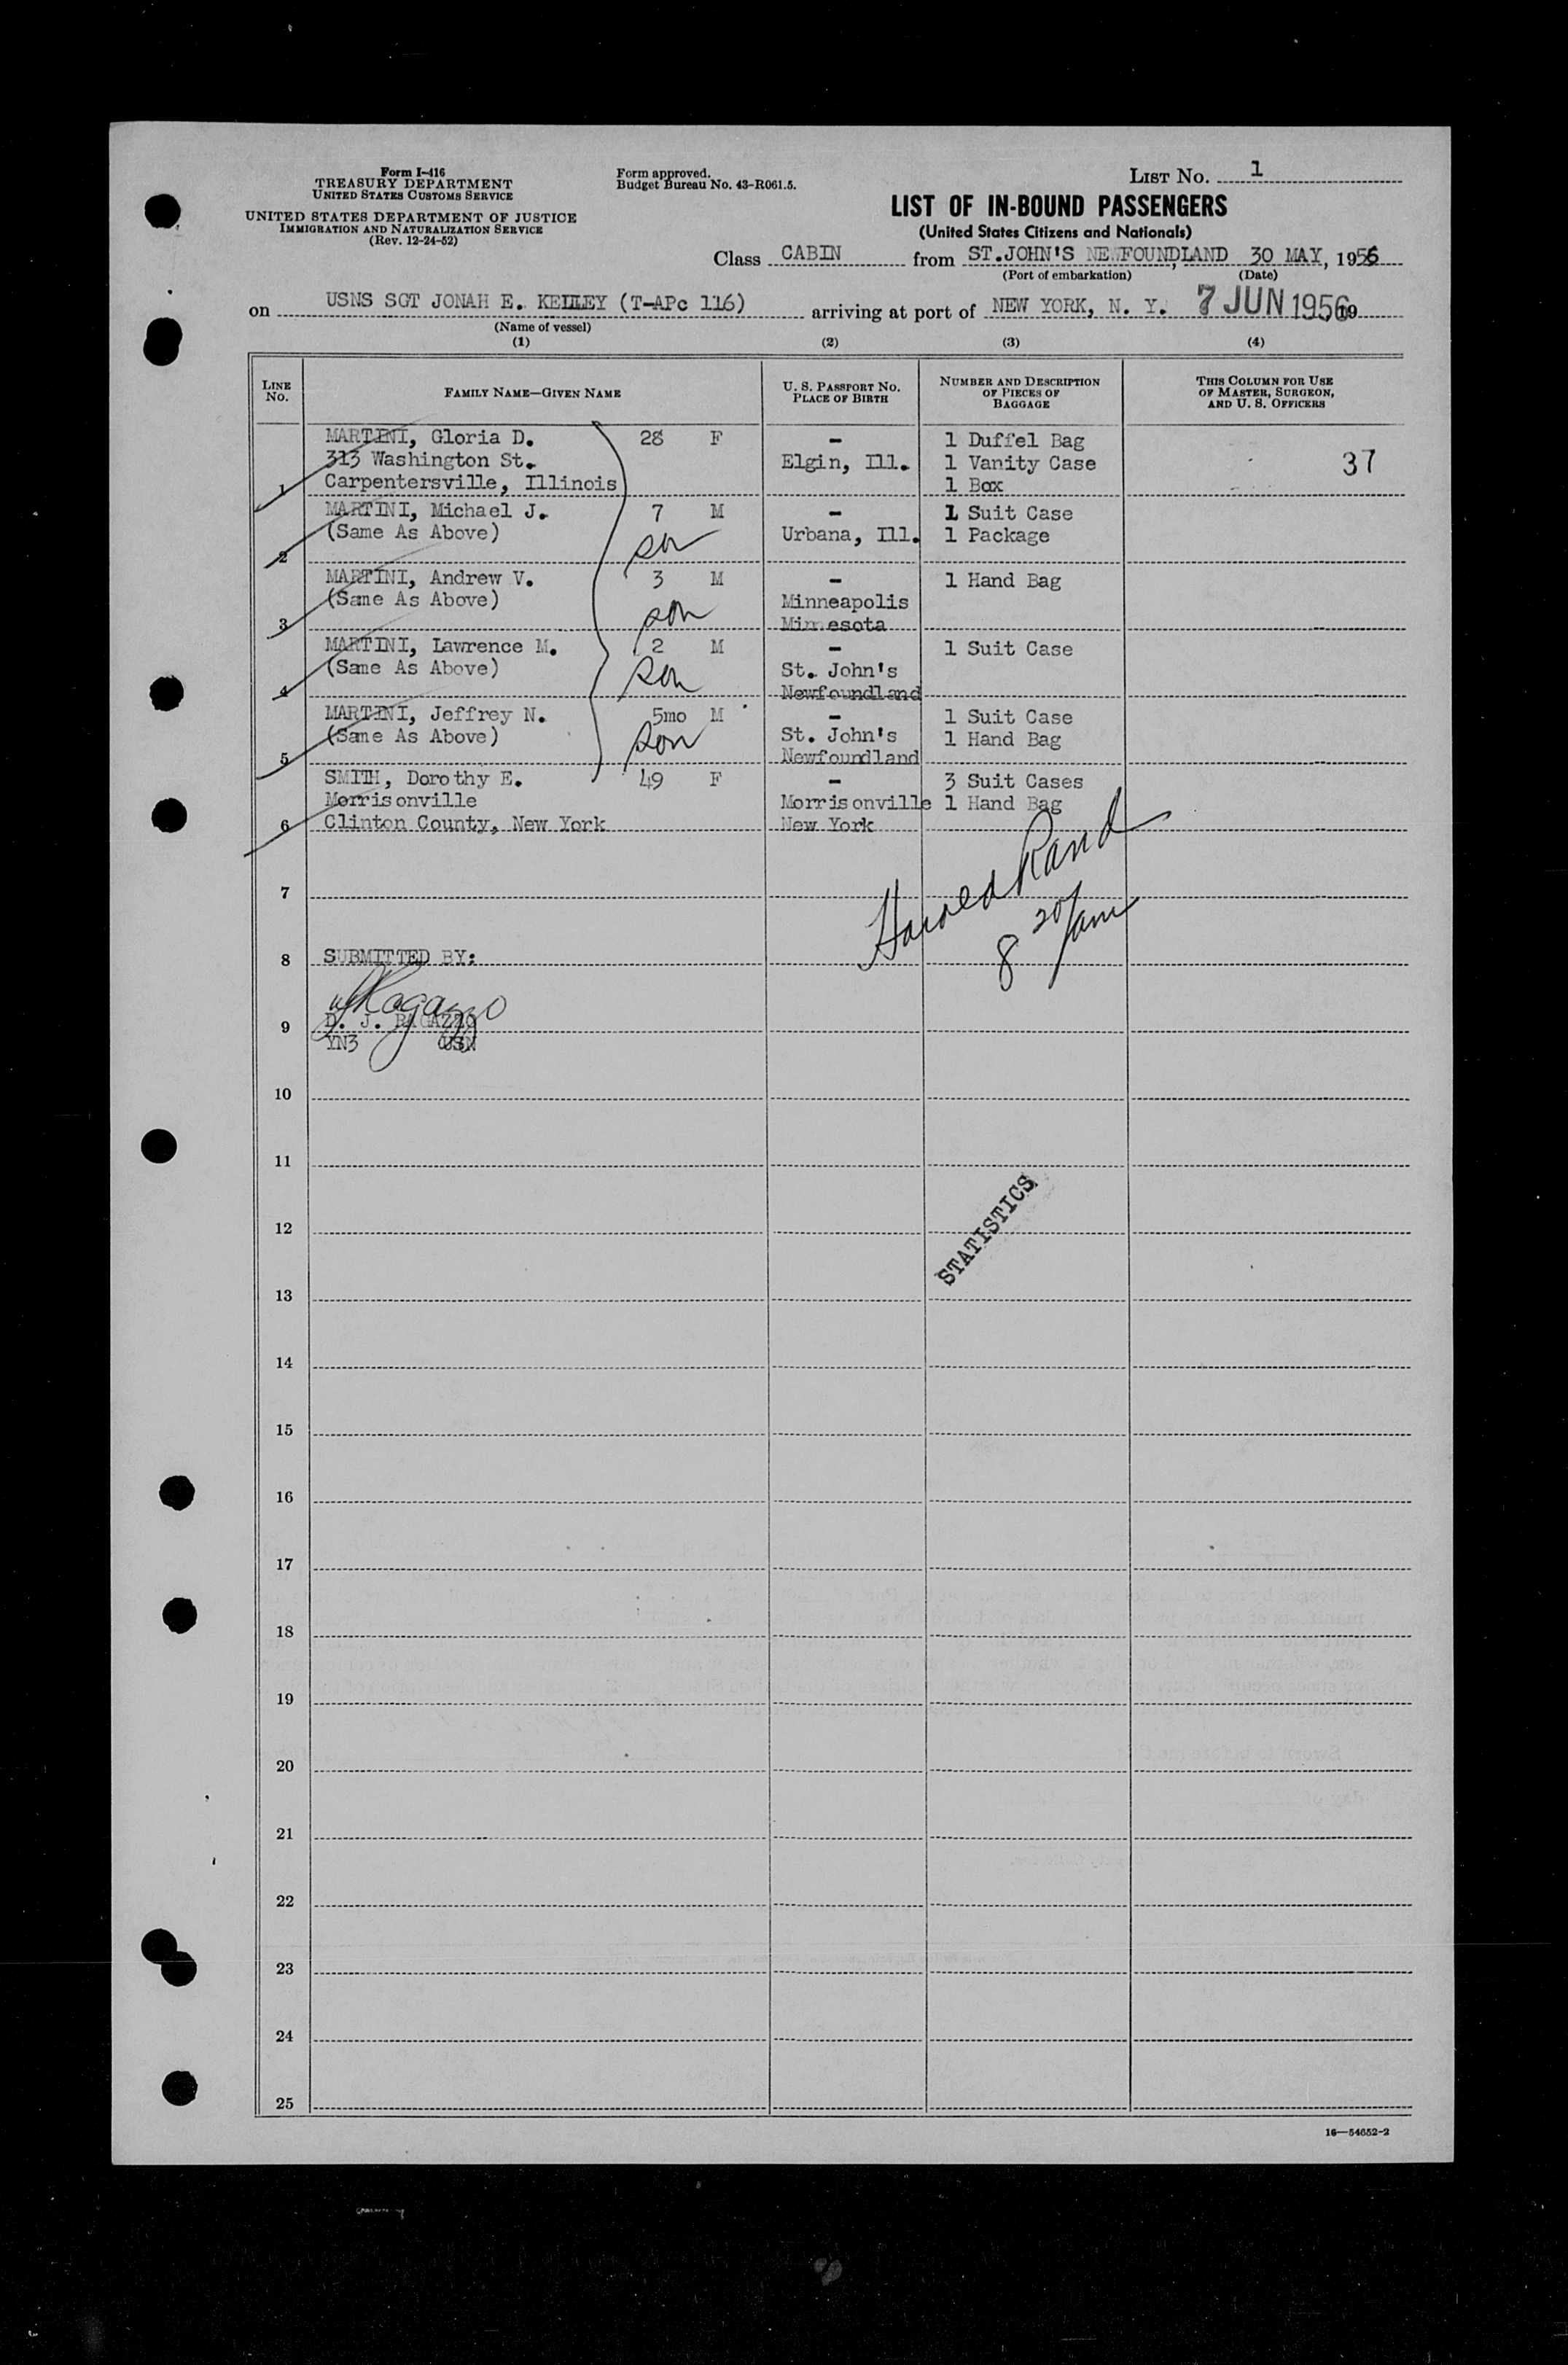 Form I-416
TREASURY DEPARTMENT
UNITED STATES CUSTOMS SERVICE
UNITED STATES DEPARTMENT OF JUSTICE
IMMIGRATION AND NATURALIZATION SERVICE
(Rev. 12-24-52)
Form approved.
Budget Bureau No. 43-R061.5.
LIST No. 1
LIST OF IN-BOUND PASSENGERS
(United States Citizens and Nationals)
Class CABIN from ST.JOHN'S NEWFOUNDLAND, 30 MAY, 1956
(Port of embarkation) (Date)
on USNS SGT JONAH E. KELLEY (T-APc 116) arriving at port of NEW YORK, N. Y. 7 JUN 1956, 19
(Name of vessel)
(1) (2) (3) (4)
LINE No. FAMILY NAME—GIVEN NAME U. S. PASSPORT No. PLACE OF BIRTH NUMBER AND DESCRIPTION OF PIECES OF BAGGAGE THIS COLUMN FOR USE OF MASTER, SURGEON, AND U. S. OFFICERS
MARTINI, Gloria D. 28 F - 1 Duffel Bag
313 Washington St. Elgin, Ill. 1 Vanity Case 37
1 Carpentersville, Illinois 1 Box
MARTINI, Michael J. 7 M - 1 Suit Case
2 (Same As Above) son Urbana, Ill. 1 Package
MARTINI, Andrew V. 3 M - 1 Hand Bag
(Same As Above) son Minneapolis
3 Minnesota
MARTINI, Lawrence M. 2 M - 1 Suit Case
(Same As Above) son St. John's
4 Newfoundland
MARTINI, Jeffrey N. 5mo M - 1 Suit Case
(Same As Above) son St. John's 1 Hand Bag
5 Newfoundland
SMITH, Dorothy E. 49 F - 3 Suit Cases
Morrisonville Morrisonville 1 Hand Bag
6 Clinton County, New York New York
Harold Rand
8 20/am
7
8 SUBMITTED BY:
Ragazzo
9 D. J. RAGAZZO
YN3 USN
10
11
12
STATISTICS
13
14
15
16
17
18
19
20
21
22
23
24
25
16—54652-2